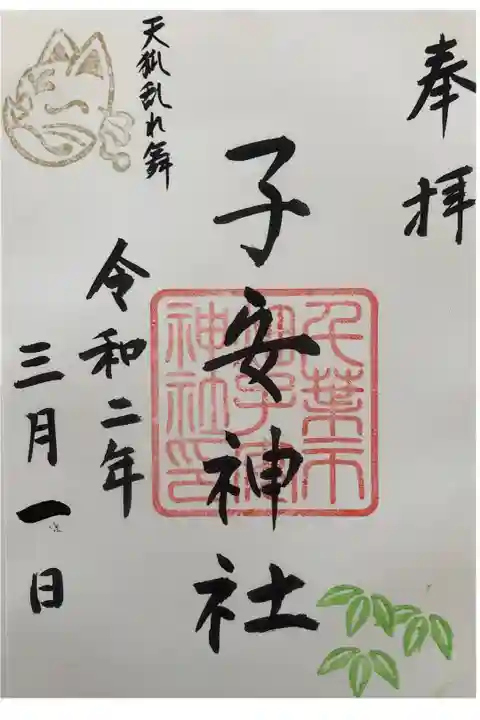 奉拝
子安神社
千葉市
神社印
天狐乱れ舞
令和二年
三月一日